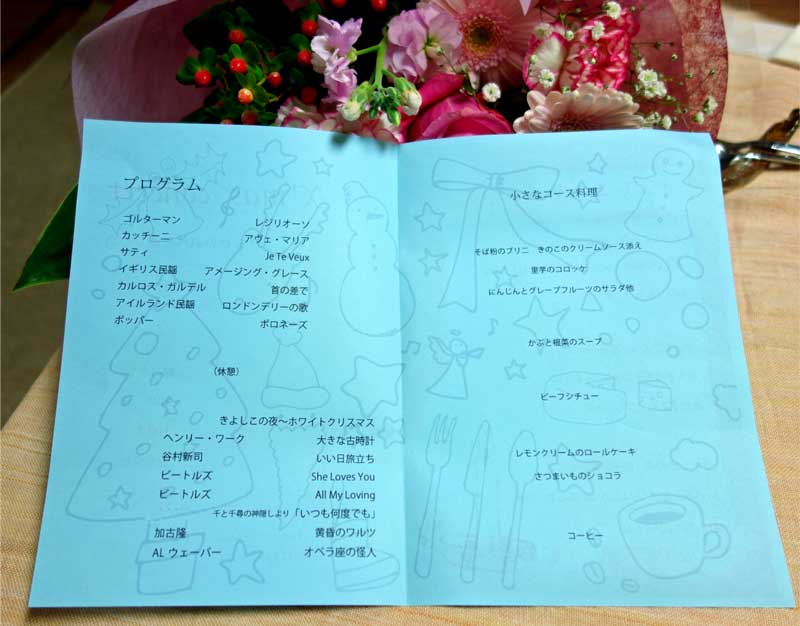 プログラム
ゴルターマン　レジリオーソ
カッチーニ　アヴェ・マリア
サティ　Je Te Veux
イギリス民謡　アメージング・グレース
カルロス・ガルデル　首の差で
アイルランド民謡　ロンドンデリーの歌
ポッパー　ポロネーズ
（休憩）
きよしこの夜～ホワイトクリスマス
ヘンリー・ワーク　大きな古時計
谷村新司　いい日旅立ち
ビートルズ　She Loves You
ビートルズ　All My Loving
千と千尋の神隠しより「いつも何度でも」
加古隆　黄昏のワルツ
AL ウェーバー　オペラ座の怪人
小さなコース料理
そば粉のブリニ　きのこのクリームソース添え
里芋のコロッケ
にんじんとグレープフルーツのサラダ他
かぶと根菜のスープ
ビーフシチュー
レモンクリームのロールケーキ
さつまいものショコラ
コーヒー